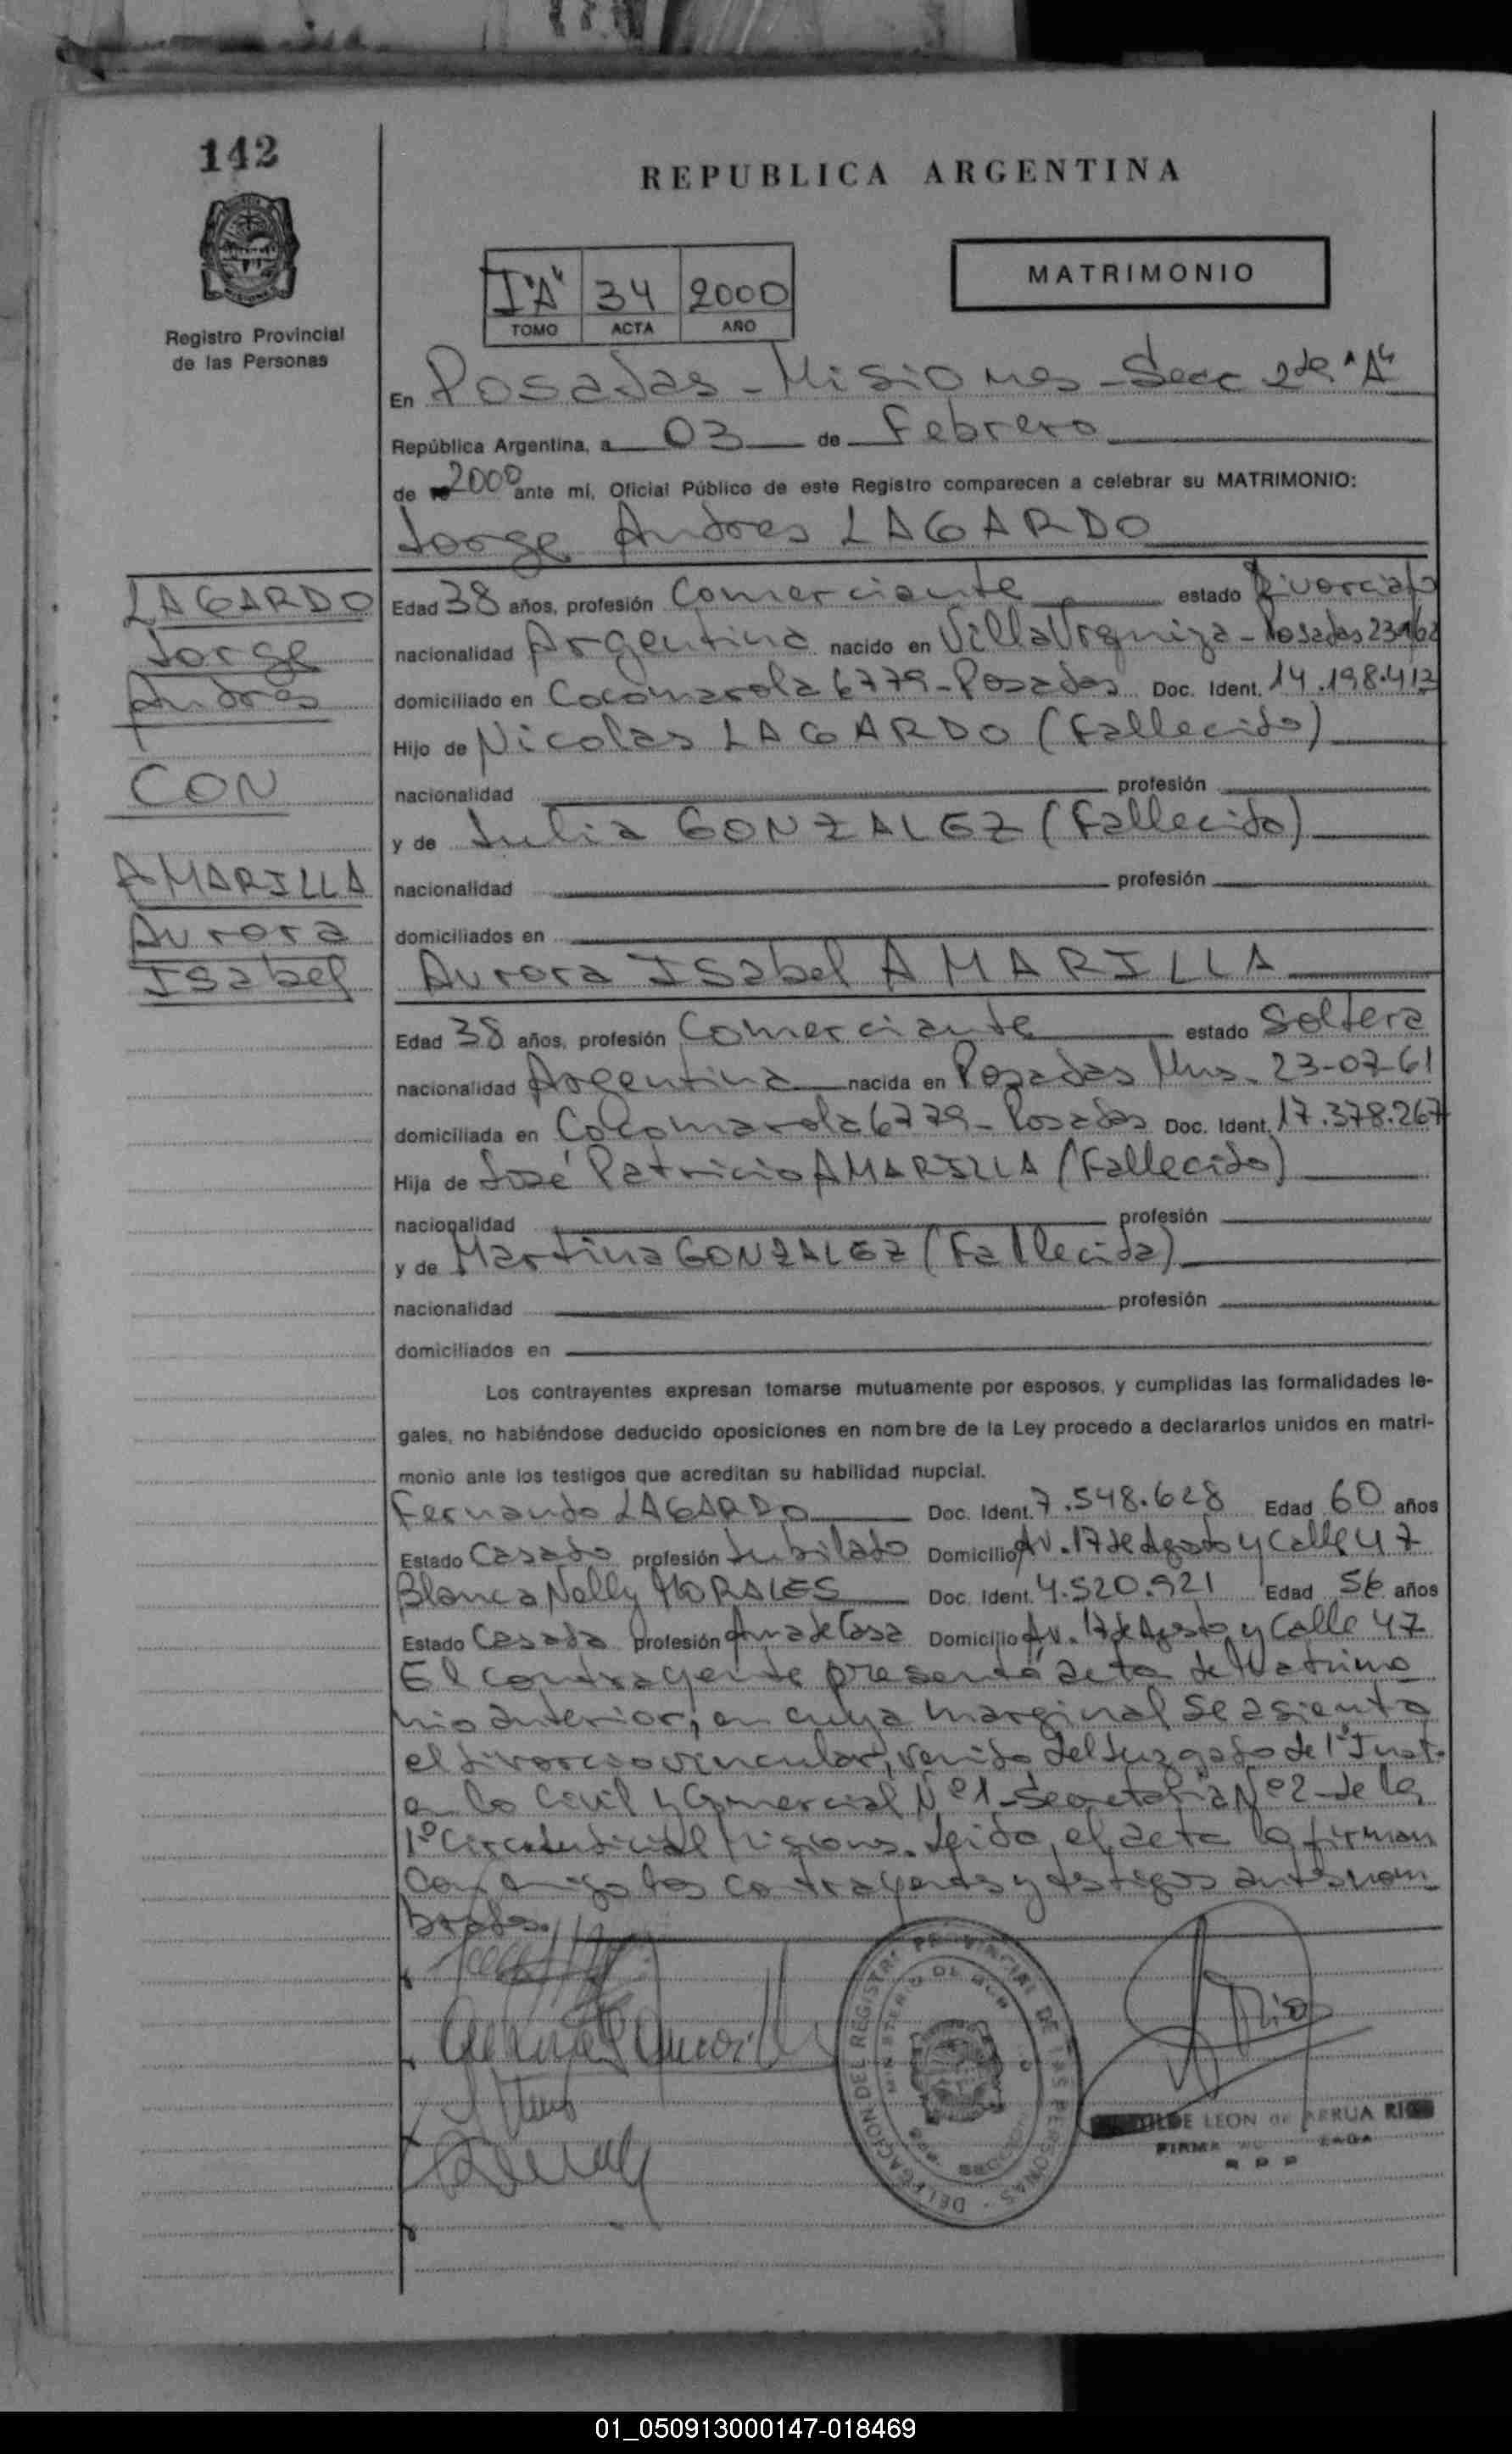 142
REPUBLICA ARGENTINA
I "A" 34 2000
TOMO ACTA AÑO
MATRIMONIO
Registro Provincial
de las Personas
En Posadas - Misiones - Secc 2da "A"
República Argentina, a 03 de Febrero
de 2000 ante mí, Oficial Público de este Registro comparecen a celebrar su MATRIMONIO:
Jorge Andres LAGARDO
LAGARDO
Jorge
Andrés
CON
AMARILLA
Aurora
Isabel
Edad 38 años, profesión Comerciante estado Divorciado
nacionalidad Argentina nacido en Villa Urquiza - Posadas
domiciliado en Cocomarola 6779 - Posadas Doc. Ident. 14.198.412
Hijo de Nicolas LAGARDO (Fallecido)
nacionalidad profesión
y de Julia GONZALEZ (Fallecida)
nacionalidad profesión
domiciliados en
Aurora Isabel AMARILLA
Edad 38 años, profesión Comerciante estado Soltera
nacionalidad Argentina nacida en Posadas Mnes. 23-07-61
domiciliada en Cocomarola 6779 - Posadas Doc. Ident. 17.378.267
Hija de José Patricio AMARILLA (Fallecido)
nacionalidad profesión
y de Martina GONZALEZ (Fallecida)
nacionalidad profesión
domiciliados en
Los contrayentes expresan tomarse mutuamente por esposos, y cumplidas las formalidades le-
gales, no habiéndose deducido oposiciones en nombre de la Ley procedo a declararlos unidos en matri-
monio ante los testigos que acreditan su habilidad nupcial.
Fernando LAGARDO Doc. Ident. 7.548.628 Edad 60 años
Estado Casado profesión Jubilado Domicilio Av. 17 de Agosto y Calle 47
Blanca Nelly MORALES Doc. Ident. 4.520.921 Edad 56 años
Estado Casada profesión Ama de Casa Domicilio Av. 17 de Agosto y Calle 47
El contrayente presentó acta de Matrimo
nio anterior, en cuya marginal se asienta
el divorcio vincular, venido del Juzgado de 1º Inst.
en lo Civil y Comercial Nº 1 - Secretaria Nº 2 - de la
1º Circ. Judicial Misiones. Leida el acta la firman
conmigo los contrayentes y testigos antes nom
brados.
DELEGACION DEL REGISTRO PROVINCIAL DE LAS PERSONAS
MINISTERIO DE GOB
LEON de ARRUA RIOS
FIRMA
01_050913000147-018469